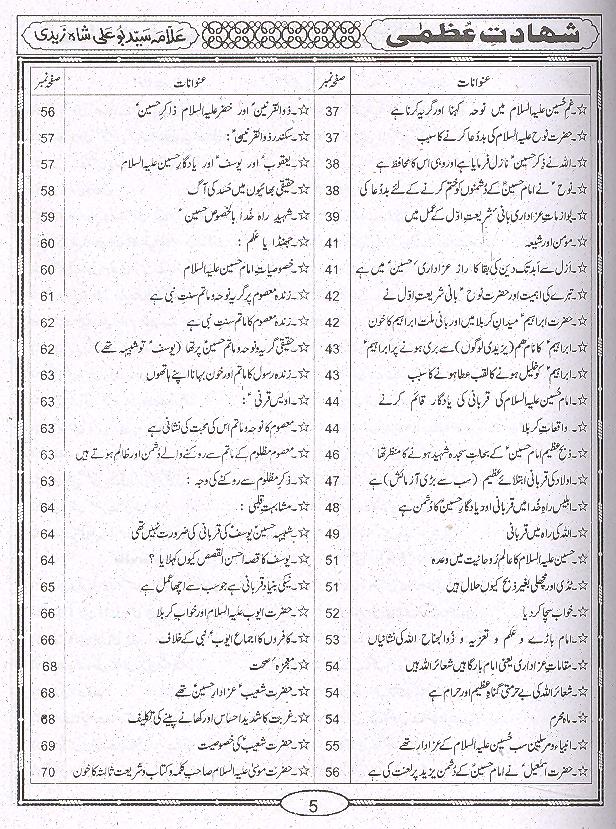 شھادتِ عُظمٰی
علامہ سید بو علی شاہ زیدی
عنوانات صفحہ نمبر
☆۔غمِ حُسین علیہ السلام میں نوحہ کہنا اور گریہ کرنا ہے 37
☆۔حضرت نوح علیہ السلام کی بددُعا کرنے کا سبب 37
☆۔اللہ نے ذکرِ حسینؑ نازل فرمایا ہے اور وہی اس کا محافظ ہے 38
☆۔نوحؑ نے امام حسینؑ کے دُشمنوں کو ختم کرنے کے لئے بددُعا کی 38
☆۔لوازماتِ عزاداری بانیٔ شریعتِ اوّل کے عمل میں 39
☆۔مومن اور شیعہ 41
☆۔ازل سے ابد تک دین کی بقا کا راز عزاداری حسینؑ میں ہے 41
☆۔تبرّے کی اہمیت اور حضرت نوحؑ بانی شریعتِ اوّل نے 42
☆۔حضرت ابراہیمؑ میدانِ کربلا میں اور بانی ملت ابراہیمؑ کا خون 42
☆۔ابراہیمؑ کا نام ھم (یزیدی لوگوں) سے بری ہونے پر ابراہیمؑ 43
☆۔ابراہیمؑ کو خلیل ہونے کا لقب عطا ہونے کا سبب 43
☆۔امام حُسین علیہ السلام کی قربانی کی یادگار قائم کرنے 44
☆۔واقعاتِ کربلا 44
☆۔ذبحِ عظیم امام حسینؑ کے بحالتِ سجدہ شہید ہونے کا منظر تھا 46
☆۔اولاد کی قربانی ابتلائے عظیم (سب سے بڑی آزمائش) ہے 47
☆۔ابلیس راہِ خُدا میں قربانی اور یادگارِ حسینؑ کا دُشمن ہے 48
☆۔اللہ کی راہ میں قربانی 49
☆۔حسین علیہ السلام کا عالمِ رُوحانیت میں وعدہ 51
☆۔ٹڈی اور مچھلی بغیر ذبح کیوں حلال ہیں 51
☆۔خواب سچا کر دیا 52
☆۔امام باڑے و عَلم و تعزیہ و ذُوالجناح اللہ کی نشانیاں 53
☆۔مقاماتِ عزاداری یعنی امام بارگاہیں شعائر اللہ ہیں 54
☆۔شعائر اللہ کی بے حرمتی گناہِ عظیم اور حرام ہے 54
☆۔ماہِ محرم 54
☆۔انبیاء و مرسلین سب حُسین علیہ السلام کے عزادار تھے 55
☆۔حضرت اسمٰعیلؑ نے امام حسینؑ کے دُشمن یزید پر لعنت کی ہے 56
عنوانات صفحہ نمبر
☆۔ذُوالقرنینؑ اور خضر علیہ السلام ذاکرِ حسینؑ 56
☆۔سکندر ذُوالقرنینؑ: 57
☆۔یعقوبؑ اور یوسفؑ اور یادگارِ حسین علیہ السلام 57
☆۔حقیقی بھائیوں میں حَسد کی آگ 58
☆۔شہیدِ راہِ خُدا بالخصوص حسینؑ 59
☆۔جھنڈا یا عَلم: 60
☆۔خصوصیات امام حسین علیہ السلام 60
☆۔زندہ معصوم پر گریہ نوحہ و ماتم سنتِ نبی ہے 61
☆۔زندہ معصوم کا ماتم سنتِ نبی ہے 62
☆۔حقیقی گریہ و نوحہ و ماتم حسینؑ پر تھا (یوسفؑ تو شبیہہ تھے) 62
☆۔زندہ رسول کا ماتم اور خون بہانا اپنے ہاتھوں 63
☆۔اویس قرنیؑ: 63
☆۔معصوم کا نوحہ و ماتم اس کی محبت کی نشانی ہے 63
☆۔معصوم مظلوم کے ماتم سے روکنے والے دُشمن اور ظالم ہوتے ہیں 63
☆۔ذکرِ مظلوم سے روکنے کی وجہ: 63
☆۔مشابہتِ قلبی: 64
☆۔شبیہہ حسینؑ یوسفؑ کی قربانی کی ضرورت نہیں تھی 64
☆۔یوسفؑ کا قصہ احسن القصص کیوں کہلایا؟ 64
☆۔نیکی بنیاد قربانی ہے جو سب سے اچھا عمل ہے 65
☆۔حضرت ایوب علیہ السلام اور خوابِ کربلا 66
☆۔کافروں کا اجماع ایوبؑ نبی کے خلاف 66
☆۔معجزہ صحت 68
☆۔حضرت شعیبؑ عزادارِ حسینؑ تھے 68
☆۔غربت کا شدید احساس اور کھانے پینے کی تکلیف 68
☆۔حضرت شعیبؑ کی خصوصیت 69
☆۔حضرت موسیٰ علیہ السلام صاحبِ کلمہ و کتاب و شریعتِ ثالثہ کا خون 70
5